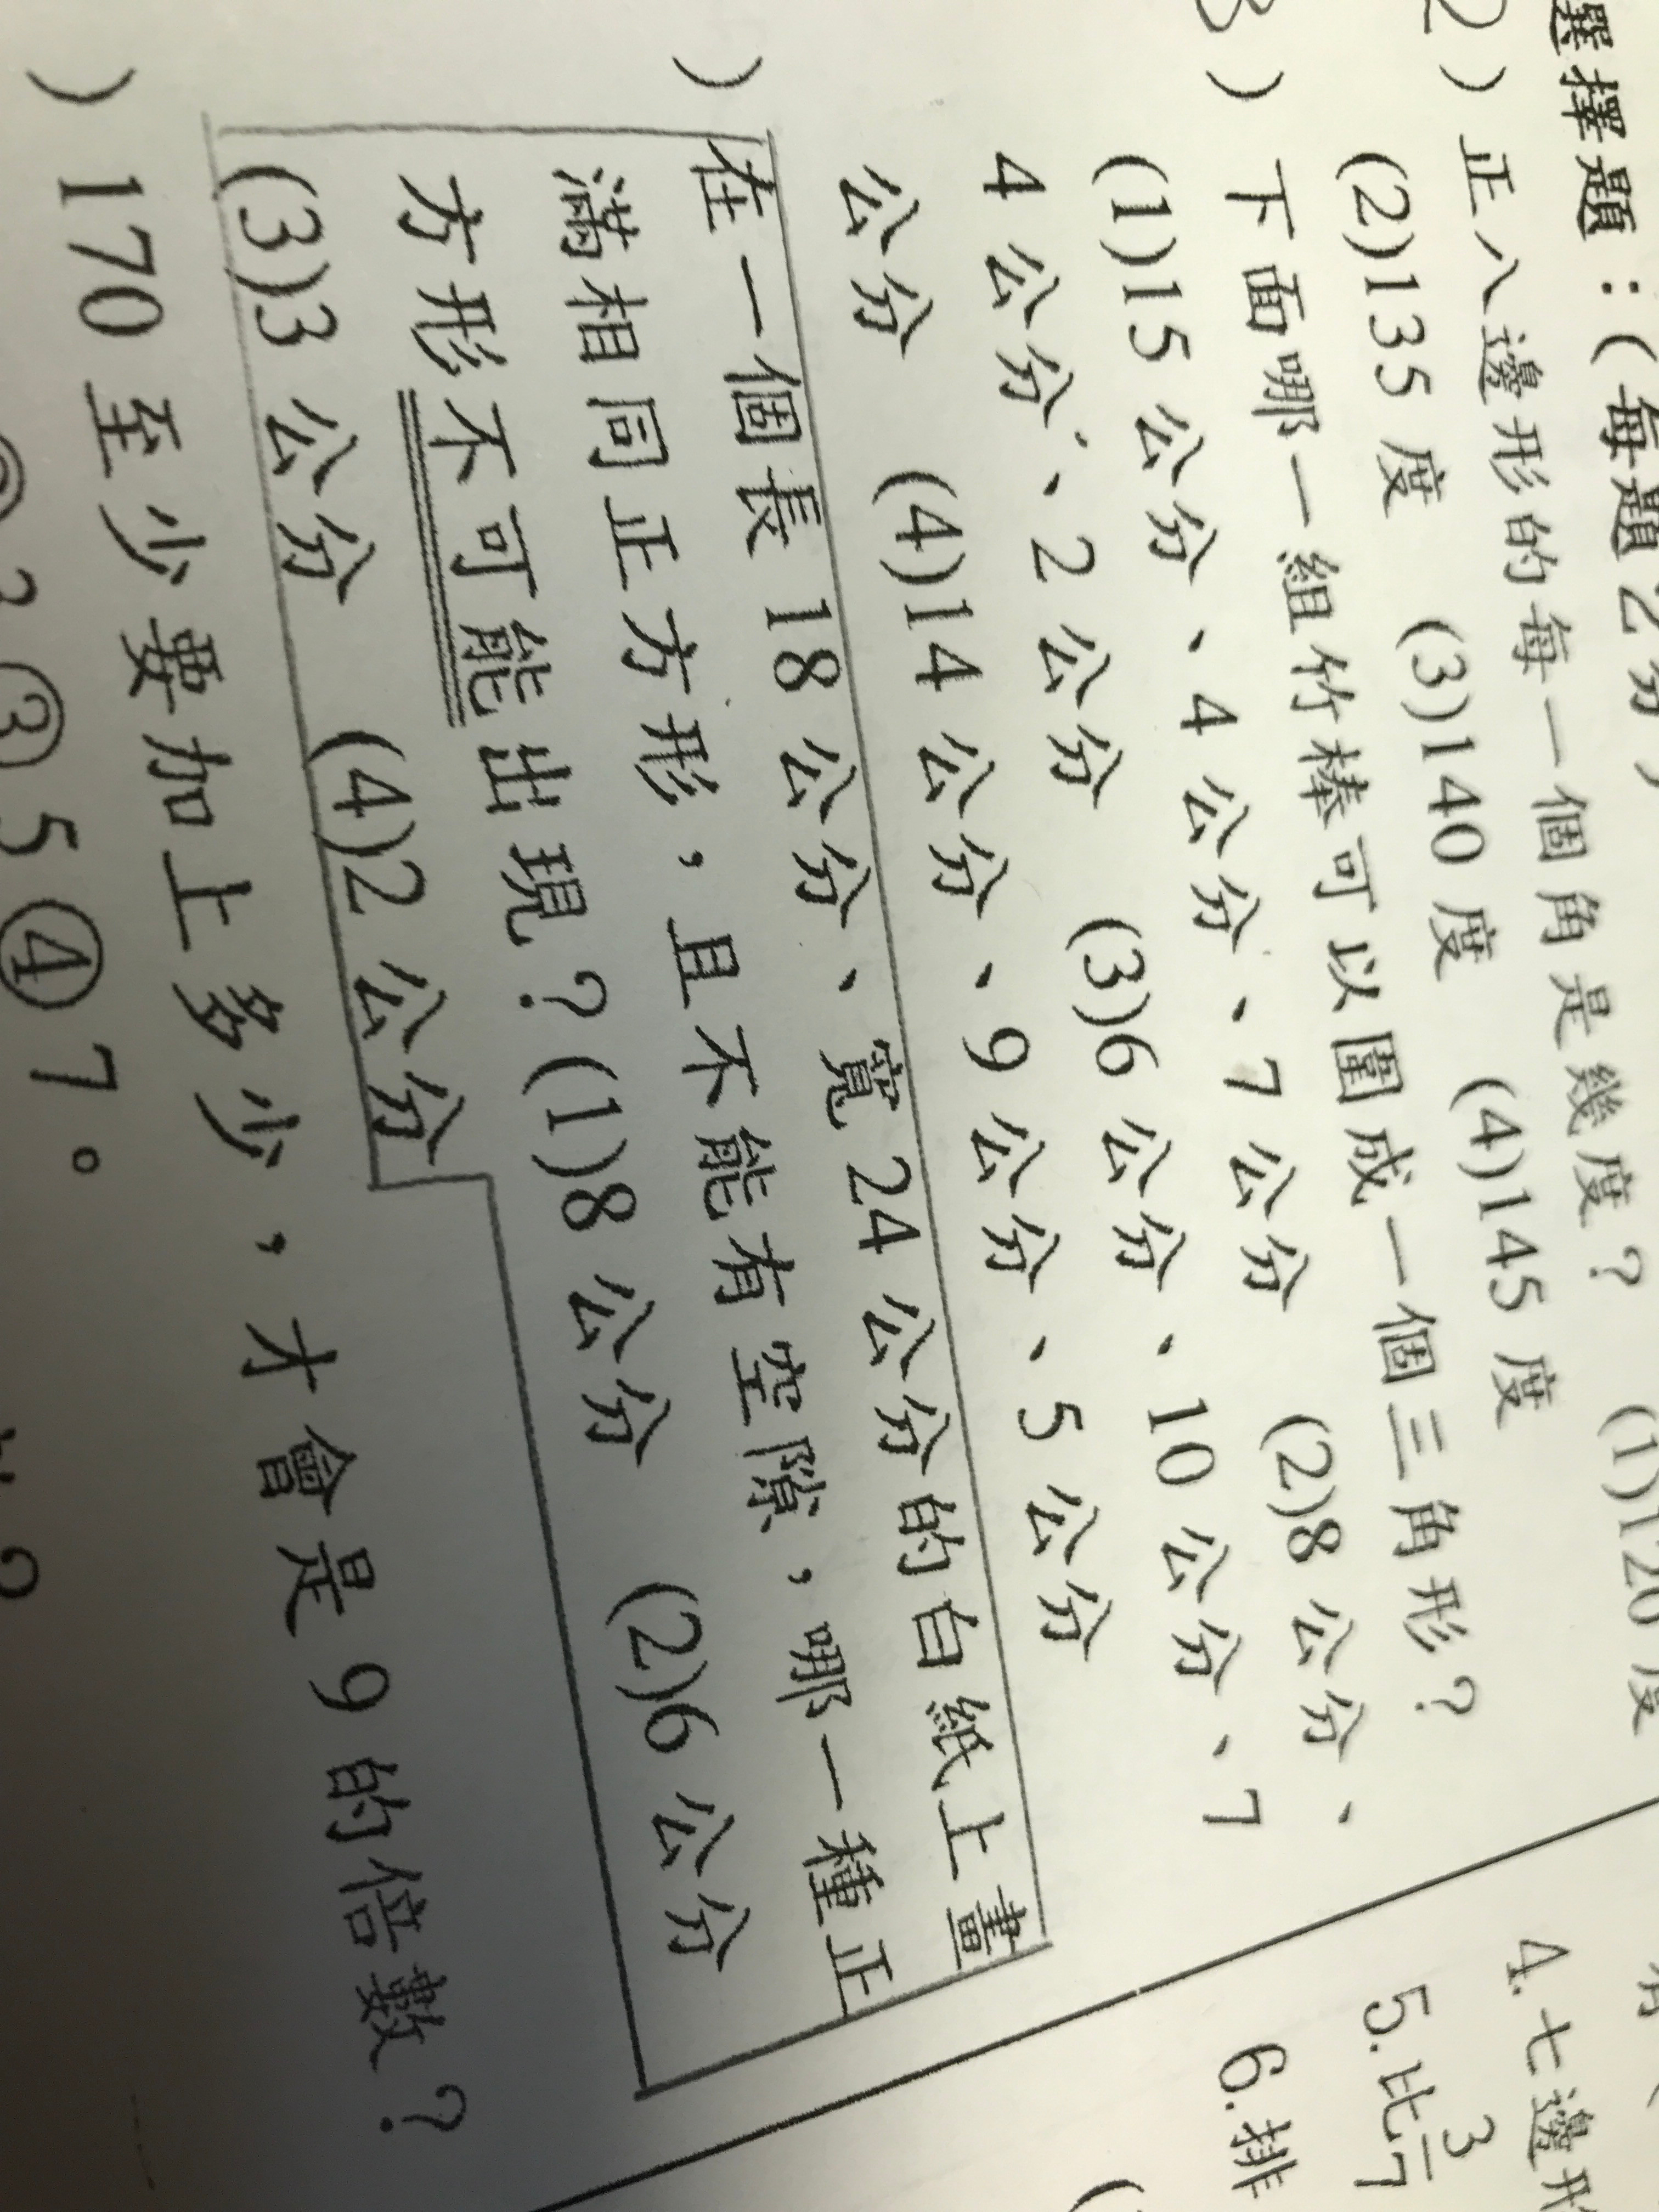 選擇題：(每題2分)
2）正八邊形的每一個角是幾度？ (1)120度
(2)135度 (3)140度 (4)145度
3）下面哪一組竹棒可以圍成一個三角形？
(1)15公分、4公分、7公分 (2)8公分、
4公分、2公分 (3)6公分、10公分、7
公分 (4)14公分、9公分、5公分
）在一個長18公分、寬24公分的白紙上畫
滿相同正方形，且不能有空隙，哪一種正
方形不可能出現？(1)8公分 (2)6公分
(3)3公分 (4)2公分
）170至少要加上多少，才會是9的倍數？
3 ③5 ④7。
4.七邊形
5.比3/7
6.排